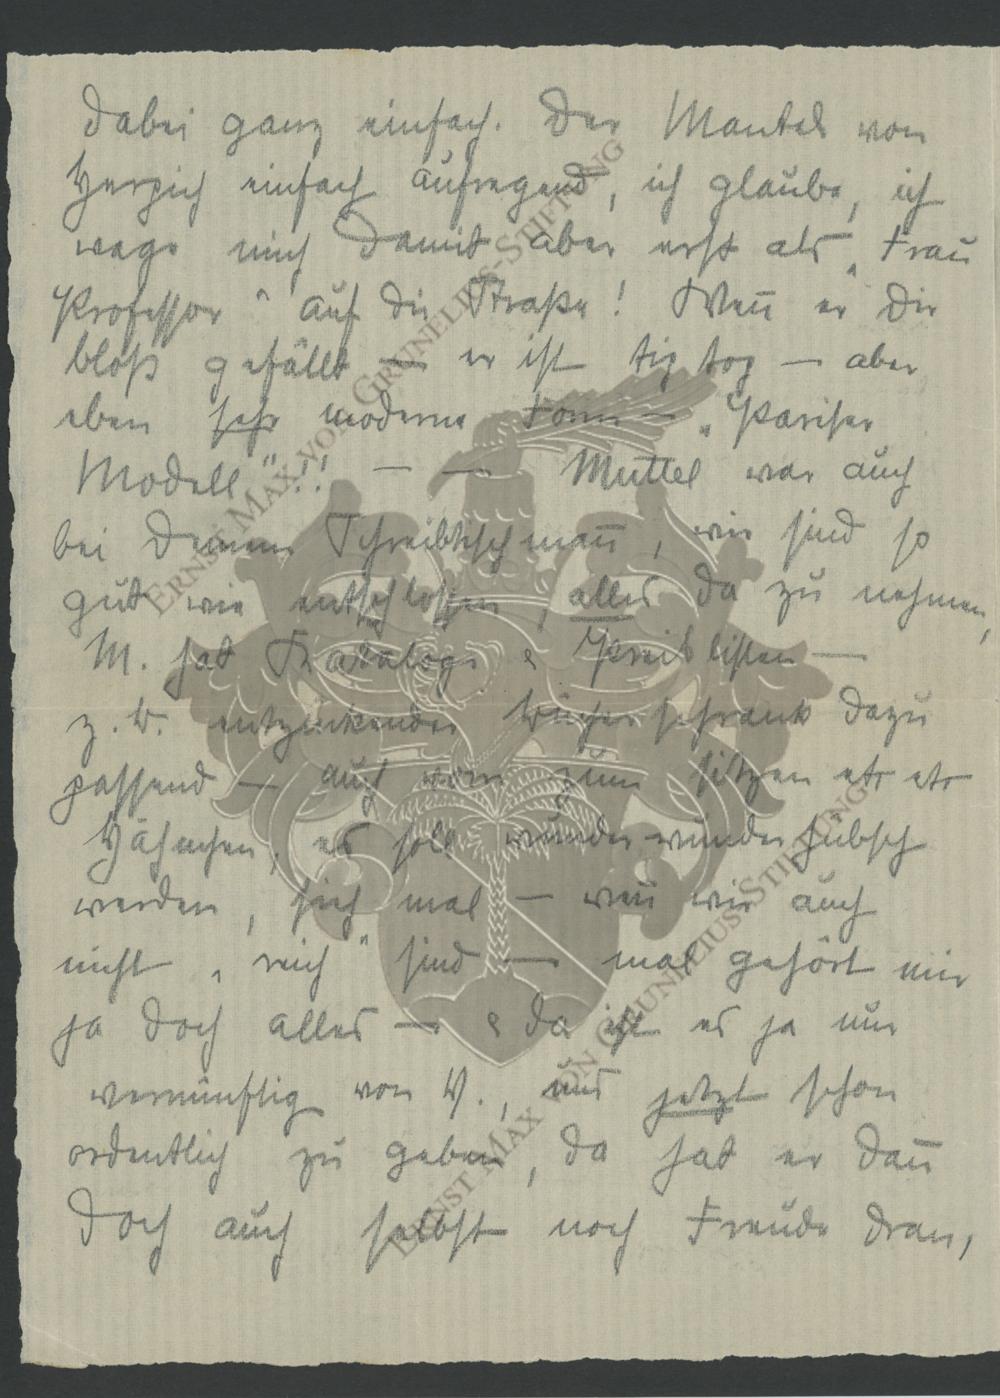 dabei ganz einfach. Der Mantel von
Herzich einfach aufregend, ich glaube, ich
wage mich damit aber erst als „Frau
Professor" auf die Straße! Weñ er Dir
bloß gefällt — er ist tip top — aber
eben sehr moderne Form — „Pariser
Modell"!! — — Muttel war auch
bei Deinem Schreibtischmañ, wir sind so
gut wie entschlossen, alles da zu nehmen,
M. hat Kataloge & Preislisten —
z. B. entzückender Bücherschrank dazu
passend — auch zum sitzen etc etc
Hähnchen, es soll wunderwunderhübsch
werden, sieh mal — weñ wir auch
nicht „reich" sind — mal gehört mir
ja doch alles — & da ist es ja nur
vernünftig von V., uns jetzt schon
ordentlich zu geben, da hat er dañ
doch auch selbst noch Freude dran,
ERNST MAX VON GRUNELIUS-STIFTUNG
ERNST MAX VON GRUNELIUS-STIFTUNG